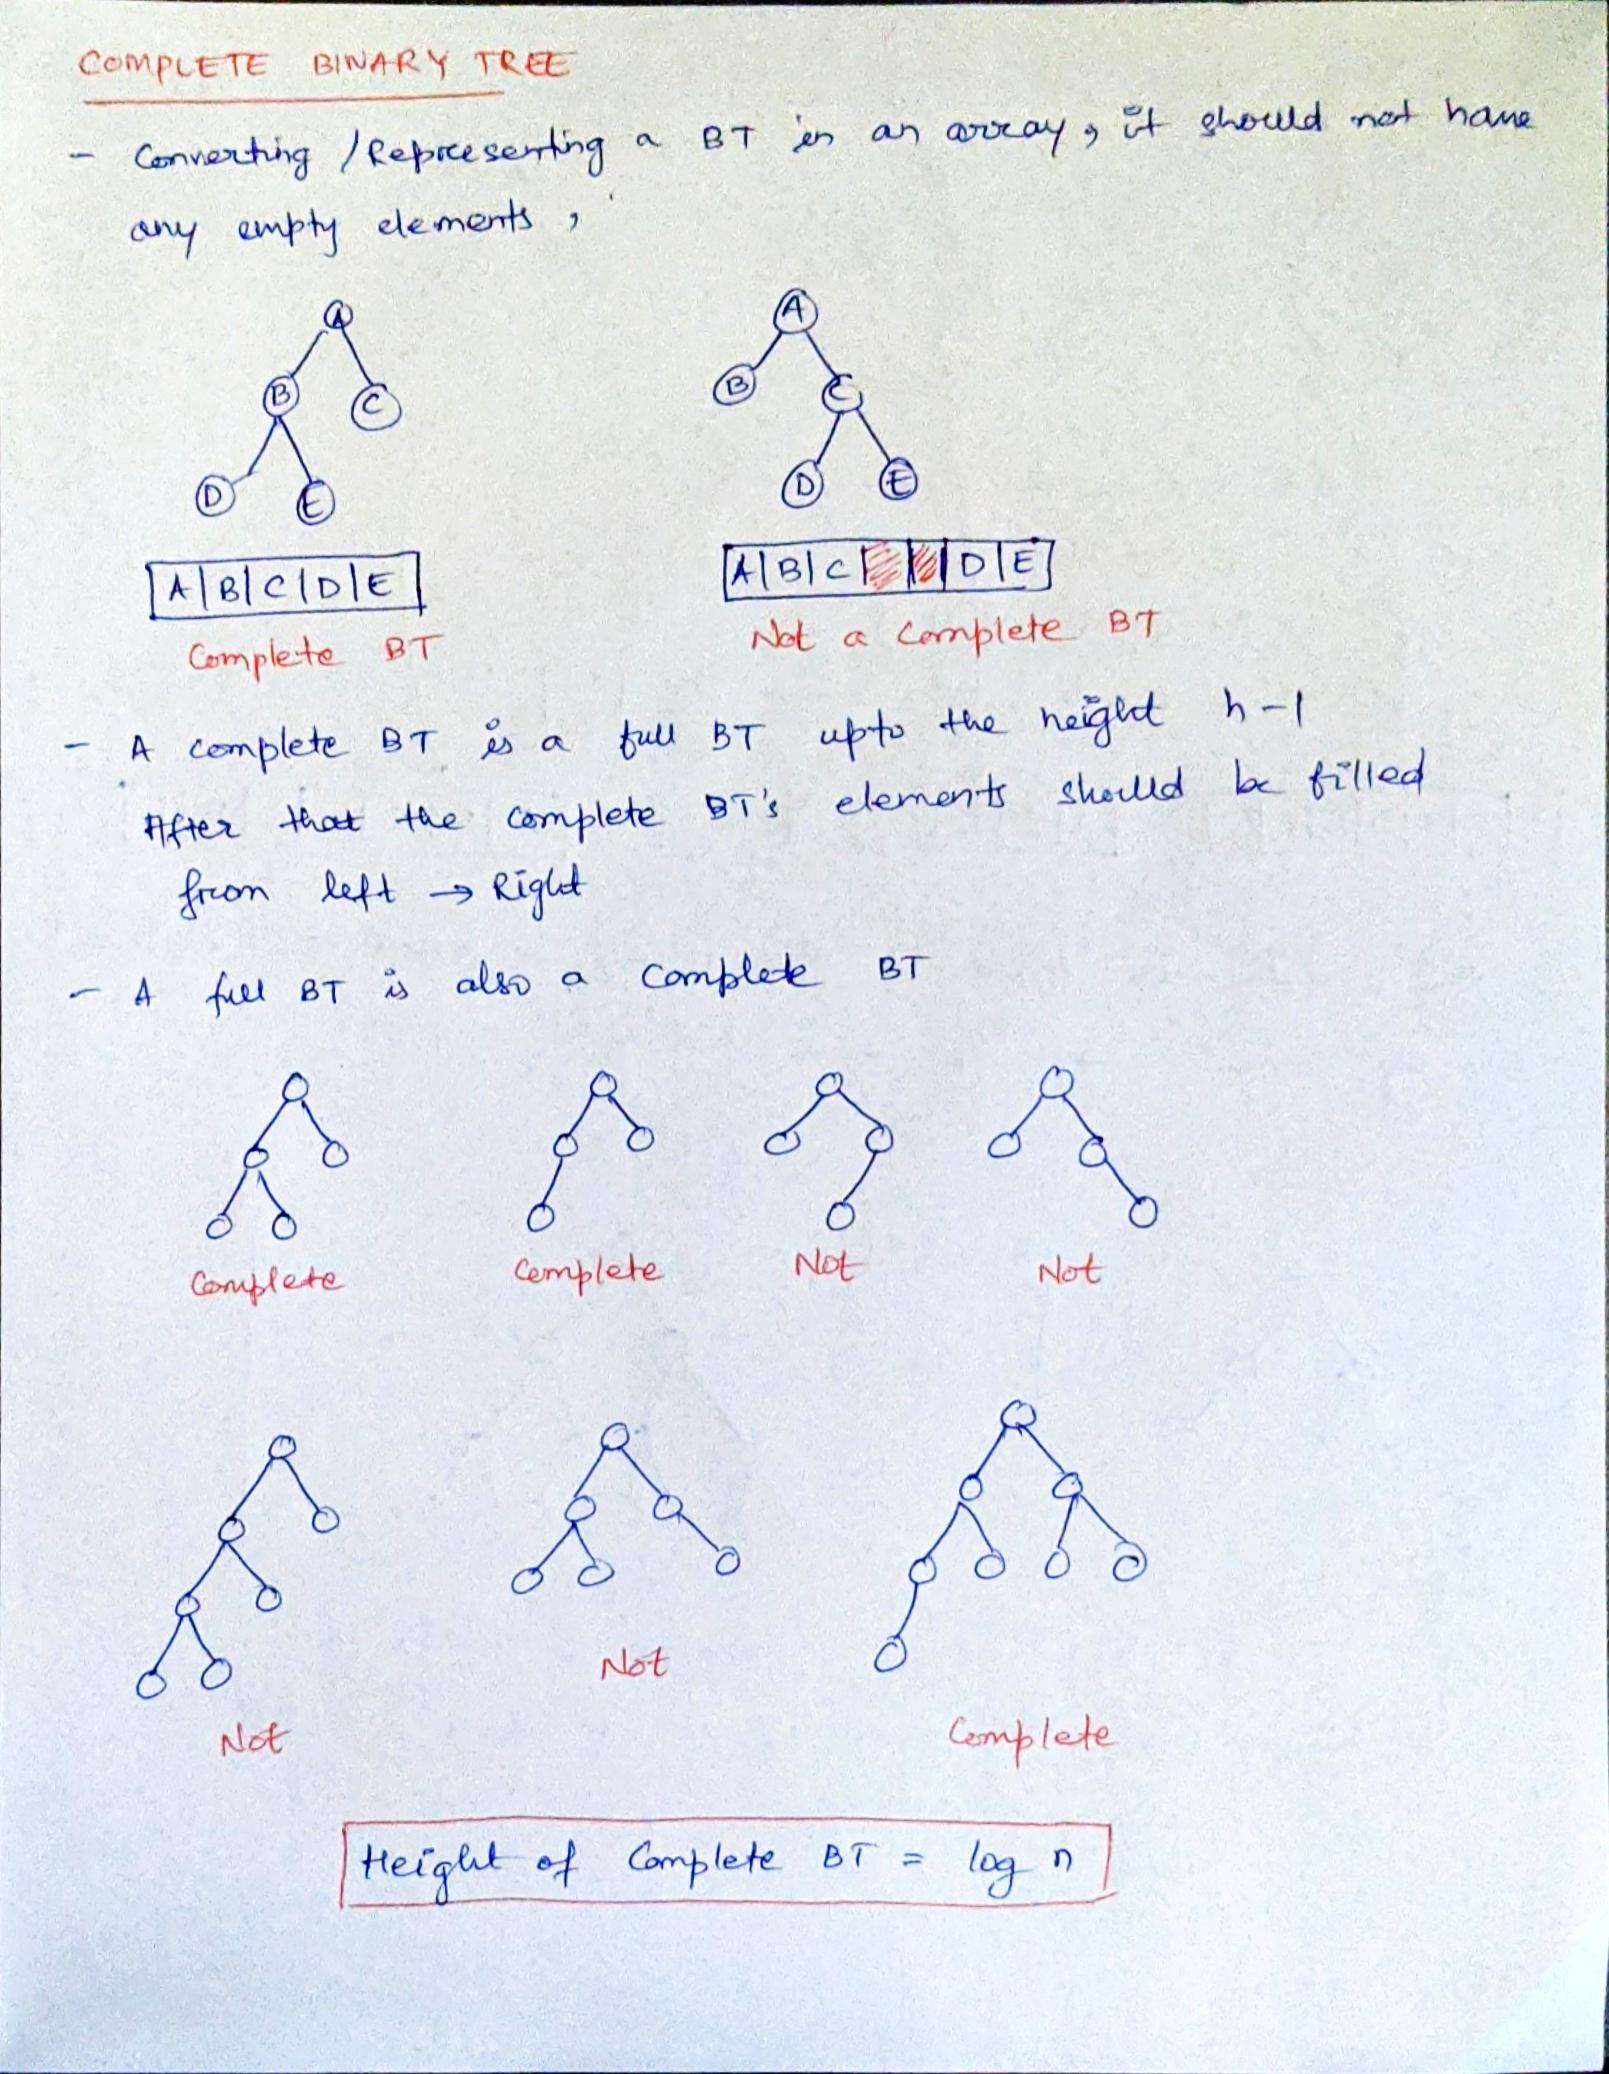 COMPLETE BINARY TREE
- Converting / Representing a BT in an array, it should not have
any empty elements,
A
B C
D E
A B C D E
Complete BT
A
B C
D E
A B C D E
Not a complete BT
- A complete BT is a full BT upto the height h-1
After that the complete BT's elements should be filled
from left → Right
- A full BT is also a complete BT
Complete Complete Not Not
Not Not Complete
Height of Complete BT = log n